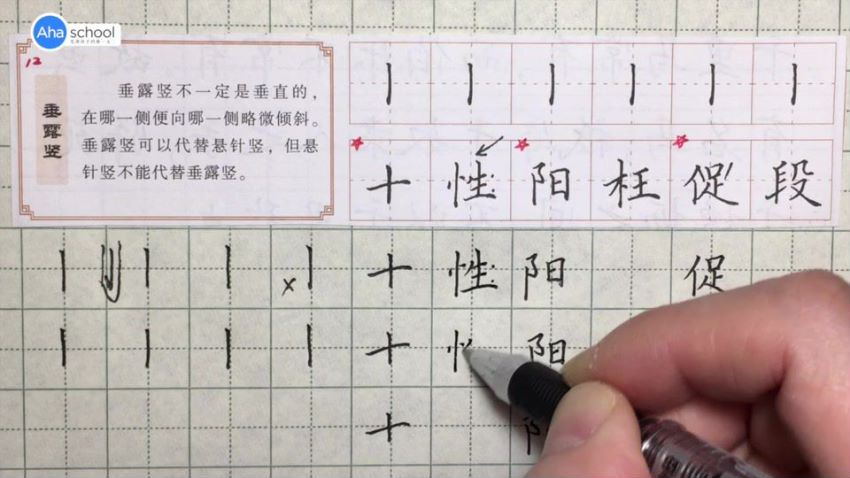 Aha school
12
垂露竖
垂露竖不一定是垂直的，
在哪一侧便向哪一侧略微倾斜。
垂露竖可以代替悬针竖，但悬
针竖不能代替垂露竖。
十 性 阳 枉 促 段
十 性 阳 促
十 阳
十